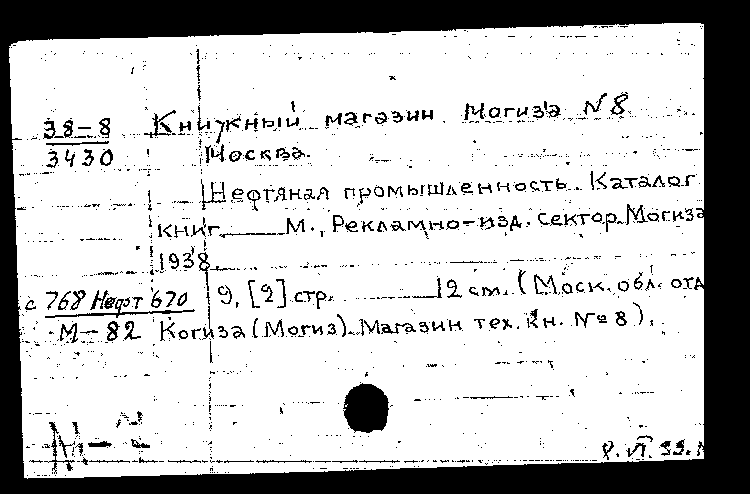 38-8
3430
Книжный магазин Могиза №8
Москва.
Нефтяная промышленность. Каталог
книг. М., Рекламно-изд. сектор Могиза
1938.
9, [2] стр. 12 см. (Моск. обл. отд
Когиза (Могиз). Магазин тех. кн. № 8).
с 768 Нефт 670
М-82